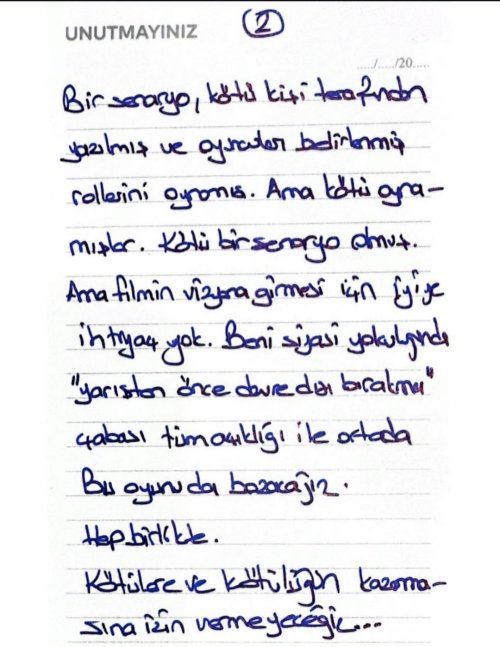 UNUTMAYINIZ
2
..../..../20.....
Bir senaryo, kötü kişi tarafından
yazılmış ve oyuncuları belirlenmiş
rollerini oynamış. Ama kötü oyna-
mışlar. Kötü bir senaryo olmuş.
Ama filmin vizyona girmesi için iyiye
ihtiyaç yok. Beni siyasi yolculuğunda
"yarıştan önce devre dışı bırakma"
çabası tüm açıklığı ile ortada
Bu oyunu da bozacağız.
Hep birlikte.
Kötülere ve kötülüğün kazanma-
sına izin vermeyeceğiz...